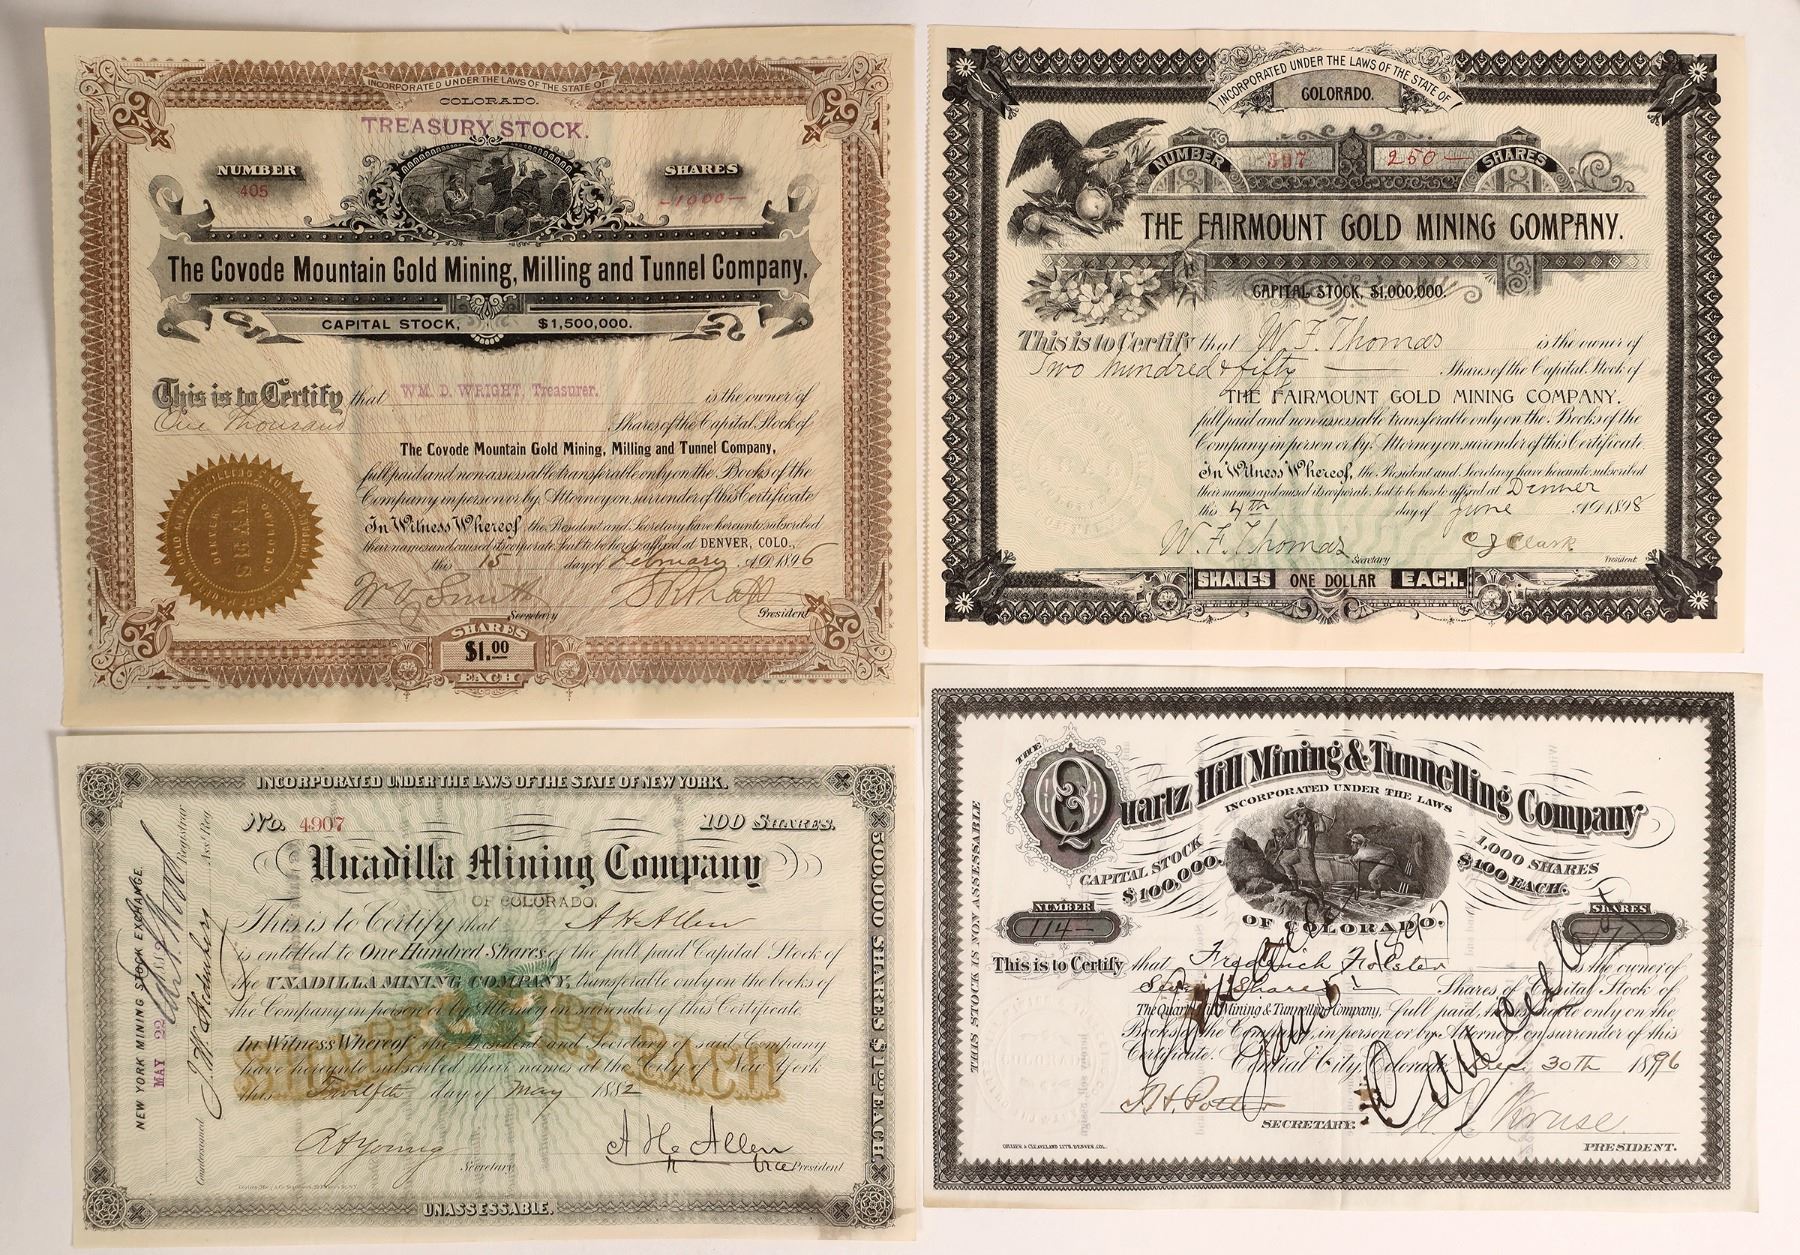 INCORPORATED UNDER THE LAWS OF THE STATE OF
COLORADO.
TREASURY STOCK.
NUMBER
405
SHARES
-1000-
The Covode Mountain Gold Mining, Milling and Tunnel Company.
CAPITAL STOCK, $1,500,000.
This is to Certify that WM. D. WRIGHT, Treasurer. is the owner of
One Thousand Shares of the Capital Stock of
The Covode Mountain Gold Mining, Milling and Tunnel Company,
full paid and non-assessable transferable only on the Books of the
Company in person or by Attorney on surrender of this Certificate
In Witness Whereof, the President and Secretary have hereunto subscribed
their names and caused its corporate Seal to be hereto affixed at DENVER, COLO.,
this 15 day of February A.D. 1896
Secretary
President
SHARES
$1.00
EACH
SEAL
INCORPORATED UNDER THE LAWS OF THE STATE OF
COLORADO.
NUMBER 397 250- SHARES
THE FAIRMOUNT GOLD MINING COMPANY.
CAPITAL STOCK, $1,000,000.
This is to Certify that W. F. Thomas is the owner of
Two hundred & fifty Shares of the Capital Stock of
THE FAIRMOUNT GOLD MINING COMPANY.
full paid and nonassessable transferable only on the Books of the
Company in person or by Attorney on surrender of this Certificate
In Witness Whereof, the President and Secretary have hereunto subscribed
their names and caused its corporate Seal to be hereto affixed at Denver
this 4th day of June A.D. 1898
W. F. Thomas Secretary
C J Clark President
SHARES ONE DOLLAR EACH.
INCORPORATED UNDER THE LAWS OF THE STATE OF NEW YORK.
No. 4907
100 SHARES.
Unadilla Mining Company
OF COLORADO.
This is to Certify that A H Allen
is entitled to One Hundred Shares of the full paid Capital Stock of
the UNADILLA MINING COMPANY, transferable only on the books of
the Company in person or by Attorney on surrender of this Certificate.
In Witness Whereof, the President and Secretary of said Company
have hereunto subscribed their names at the City of New York
this Twelfth day of May 1882
R H Young
Secretary
A H Allen
Vice President
UNASSESSABLE.
500,000 SHARES $1.00 EACH
NEW YORK MINING STOCK EXCHANGE.
MAY 22 1882
Registrar
Countersigned
THE Quartz Hill Mining & Tunnelling Company
INCORPORATED UNDER THE LAWS
OF COLORADO.
CAPITAL STOCK
$100,000.
1,000 SHARES
$100 EACH.
THIS STOCK IS NON ASSESSABLE
NUMBER
114-
SHARES
This is to Certify that Fredrich Folster is the owner of
Shares of Capital Stock of
The Quartz Hill Mining & Tunnelling Company, full paid, transferable only on the
Books of the Company, in person or by Attorney, on surrender of this
Certificate. Central City Colorado, Dec. 30th 1896
SECRETARY.
Kruse
PRESIDENT.